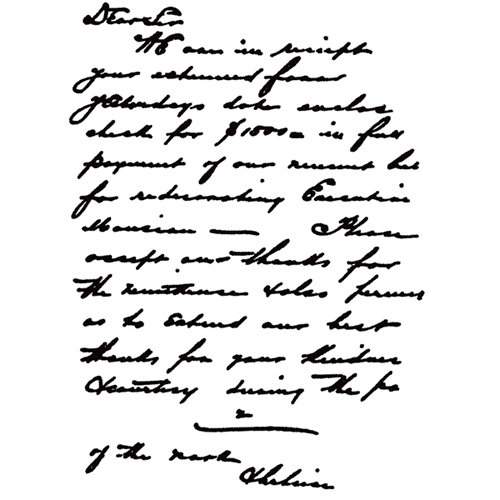 Dear Sir
WE are in receipt
your esteemed favor
yesterdays date enclos
check for $1500 in full
payment of our recent
for redecorating Executive
Mansion — Please
accept our thanks for
the remittance & also permit
us to Extend our best
thanks for your kindness
& courtesy during the
2
of the work